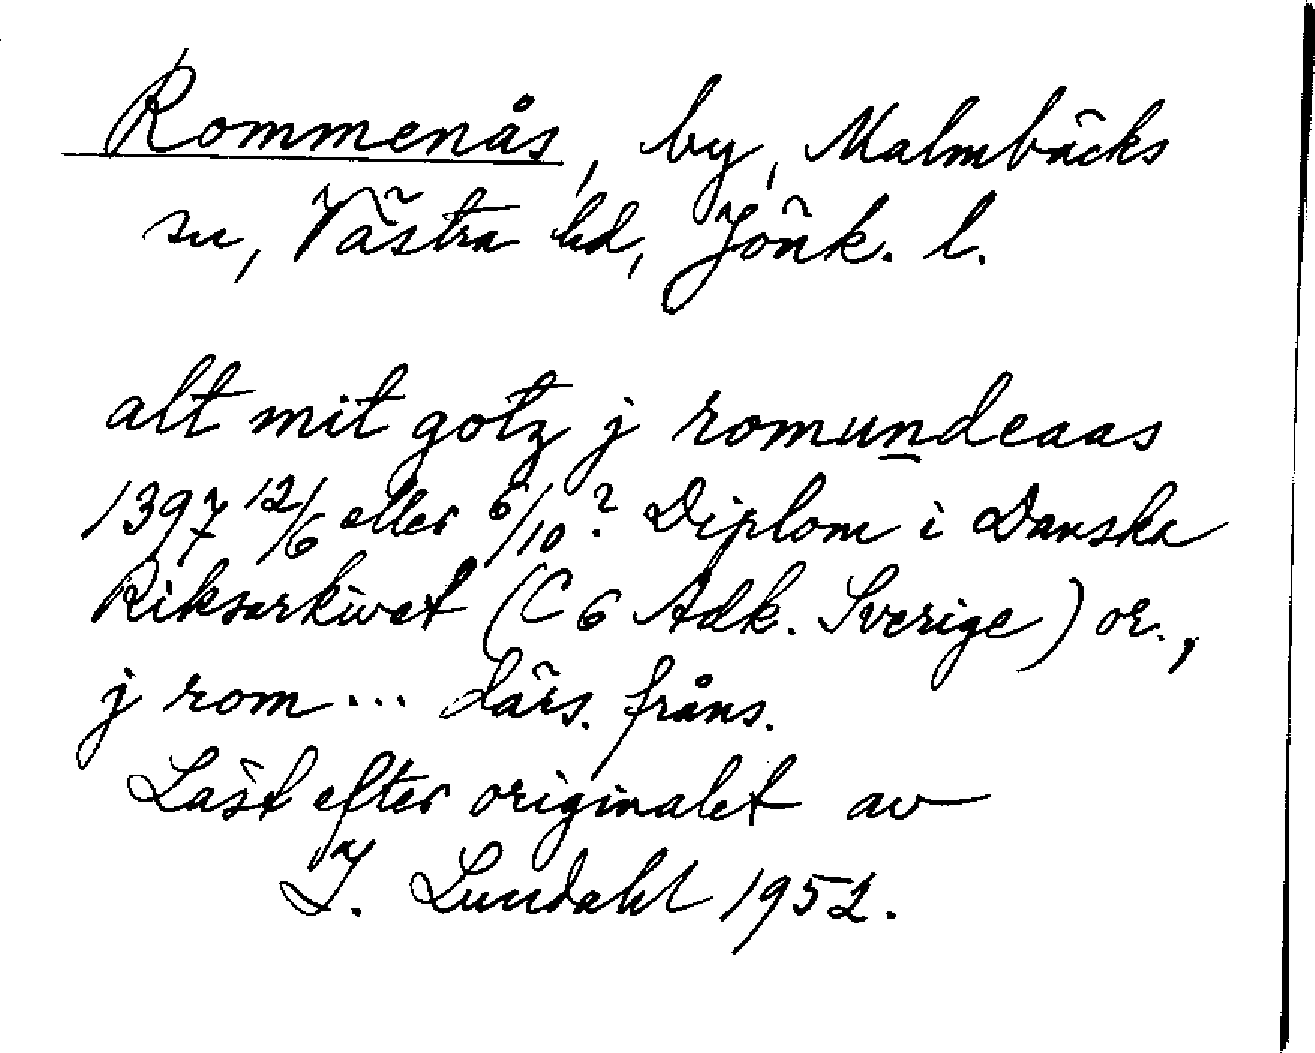 Rommenås, by, Malmbäcks
sn, Västra hd, Jönk. l.
alt mit gotz j romundeaas
1397 12/6 eller 6/10? Diplom i Danska
Riksarkivet (C 6 Adk. Sverige) or.,
j rom... därs. fråns.
Läst efter originalet av
I. Lundahl 1952.